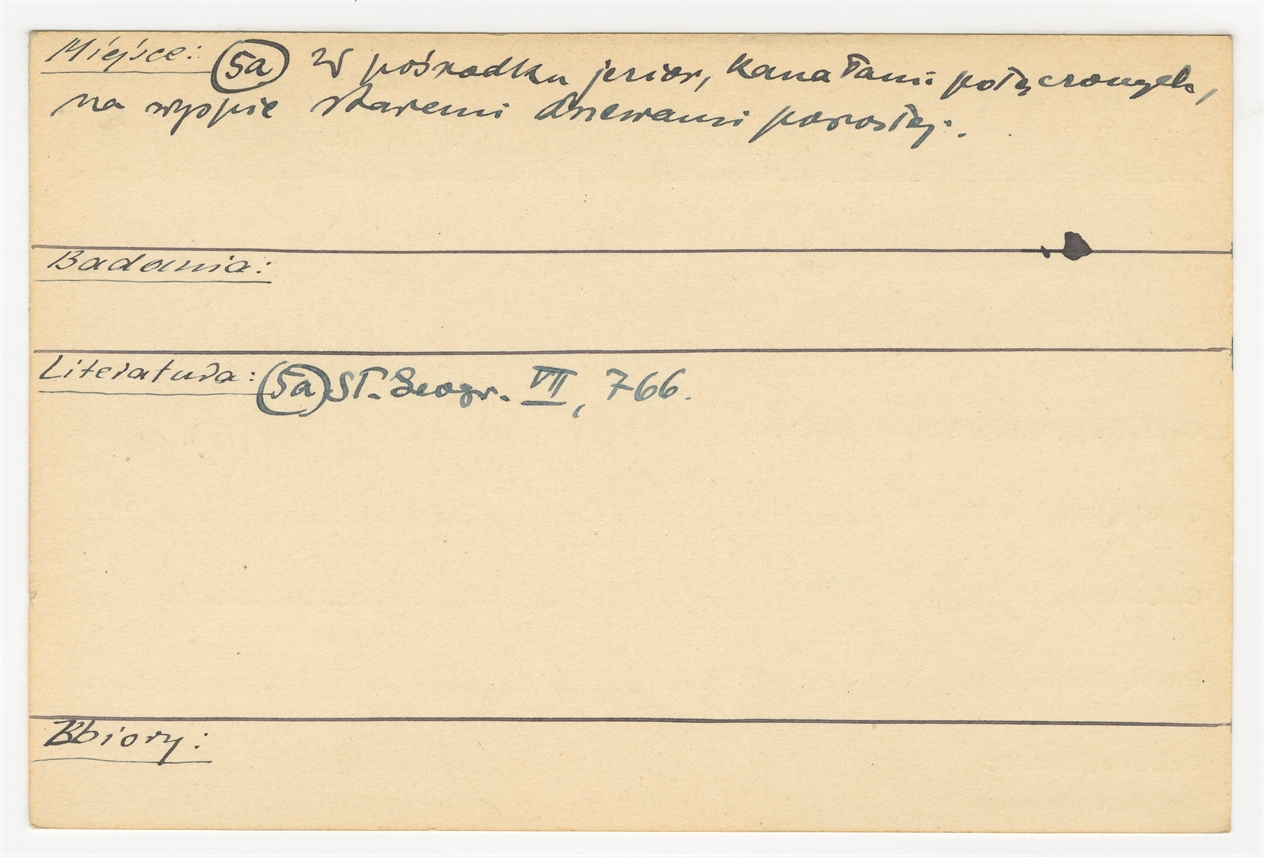 Miejsce: 5a W pośrodku jezior, kanałami połączonych,
na wyspie staremi drzewami porosłej.
Badania:
Literatura: 5a Sł. Geogr. VII, 766.
Zbiory: